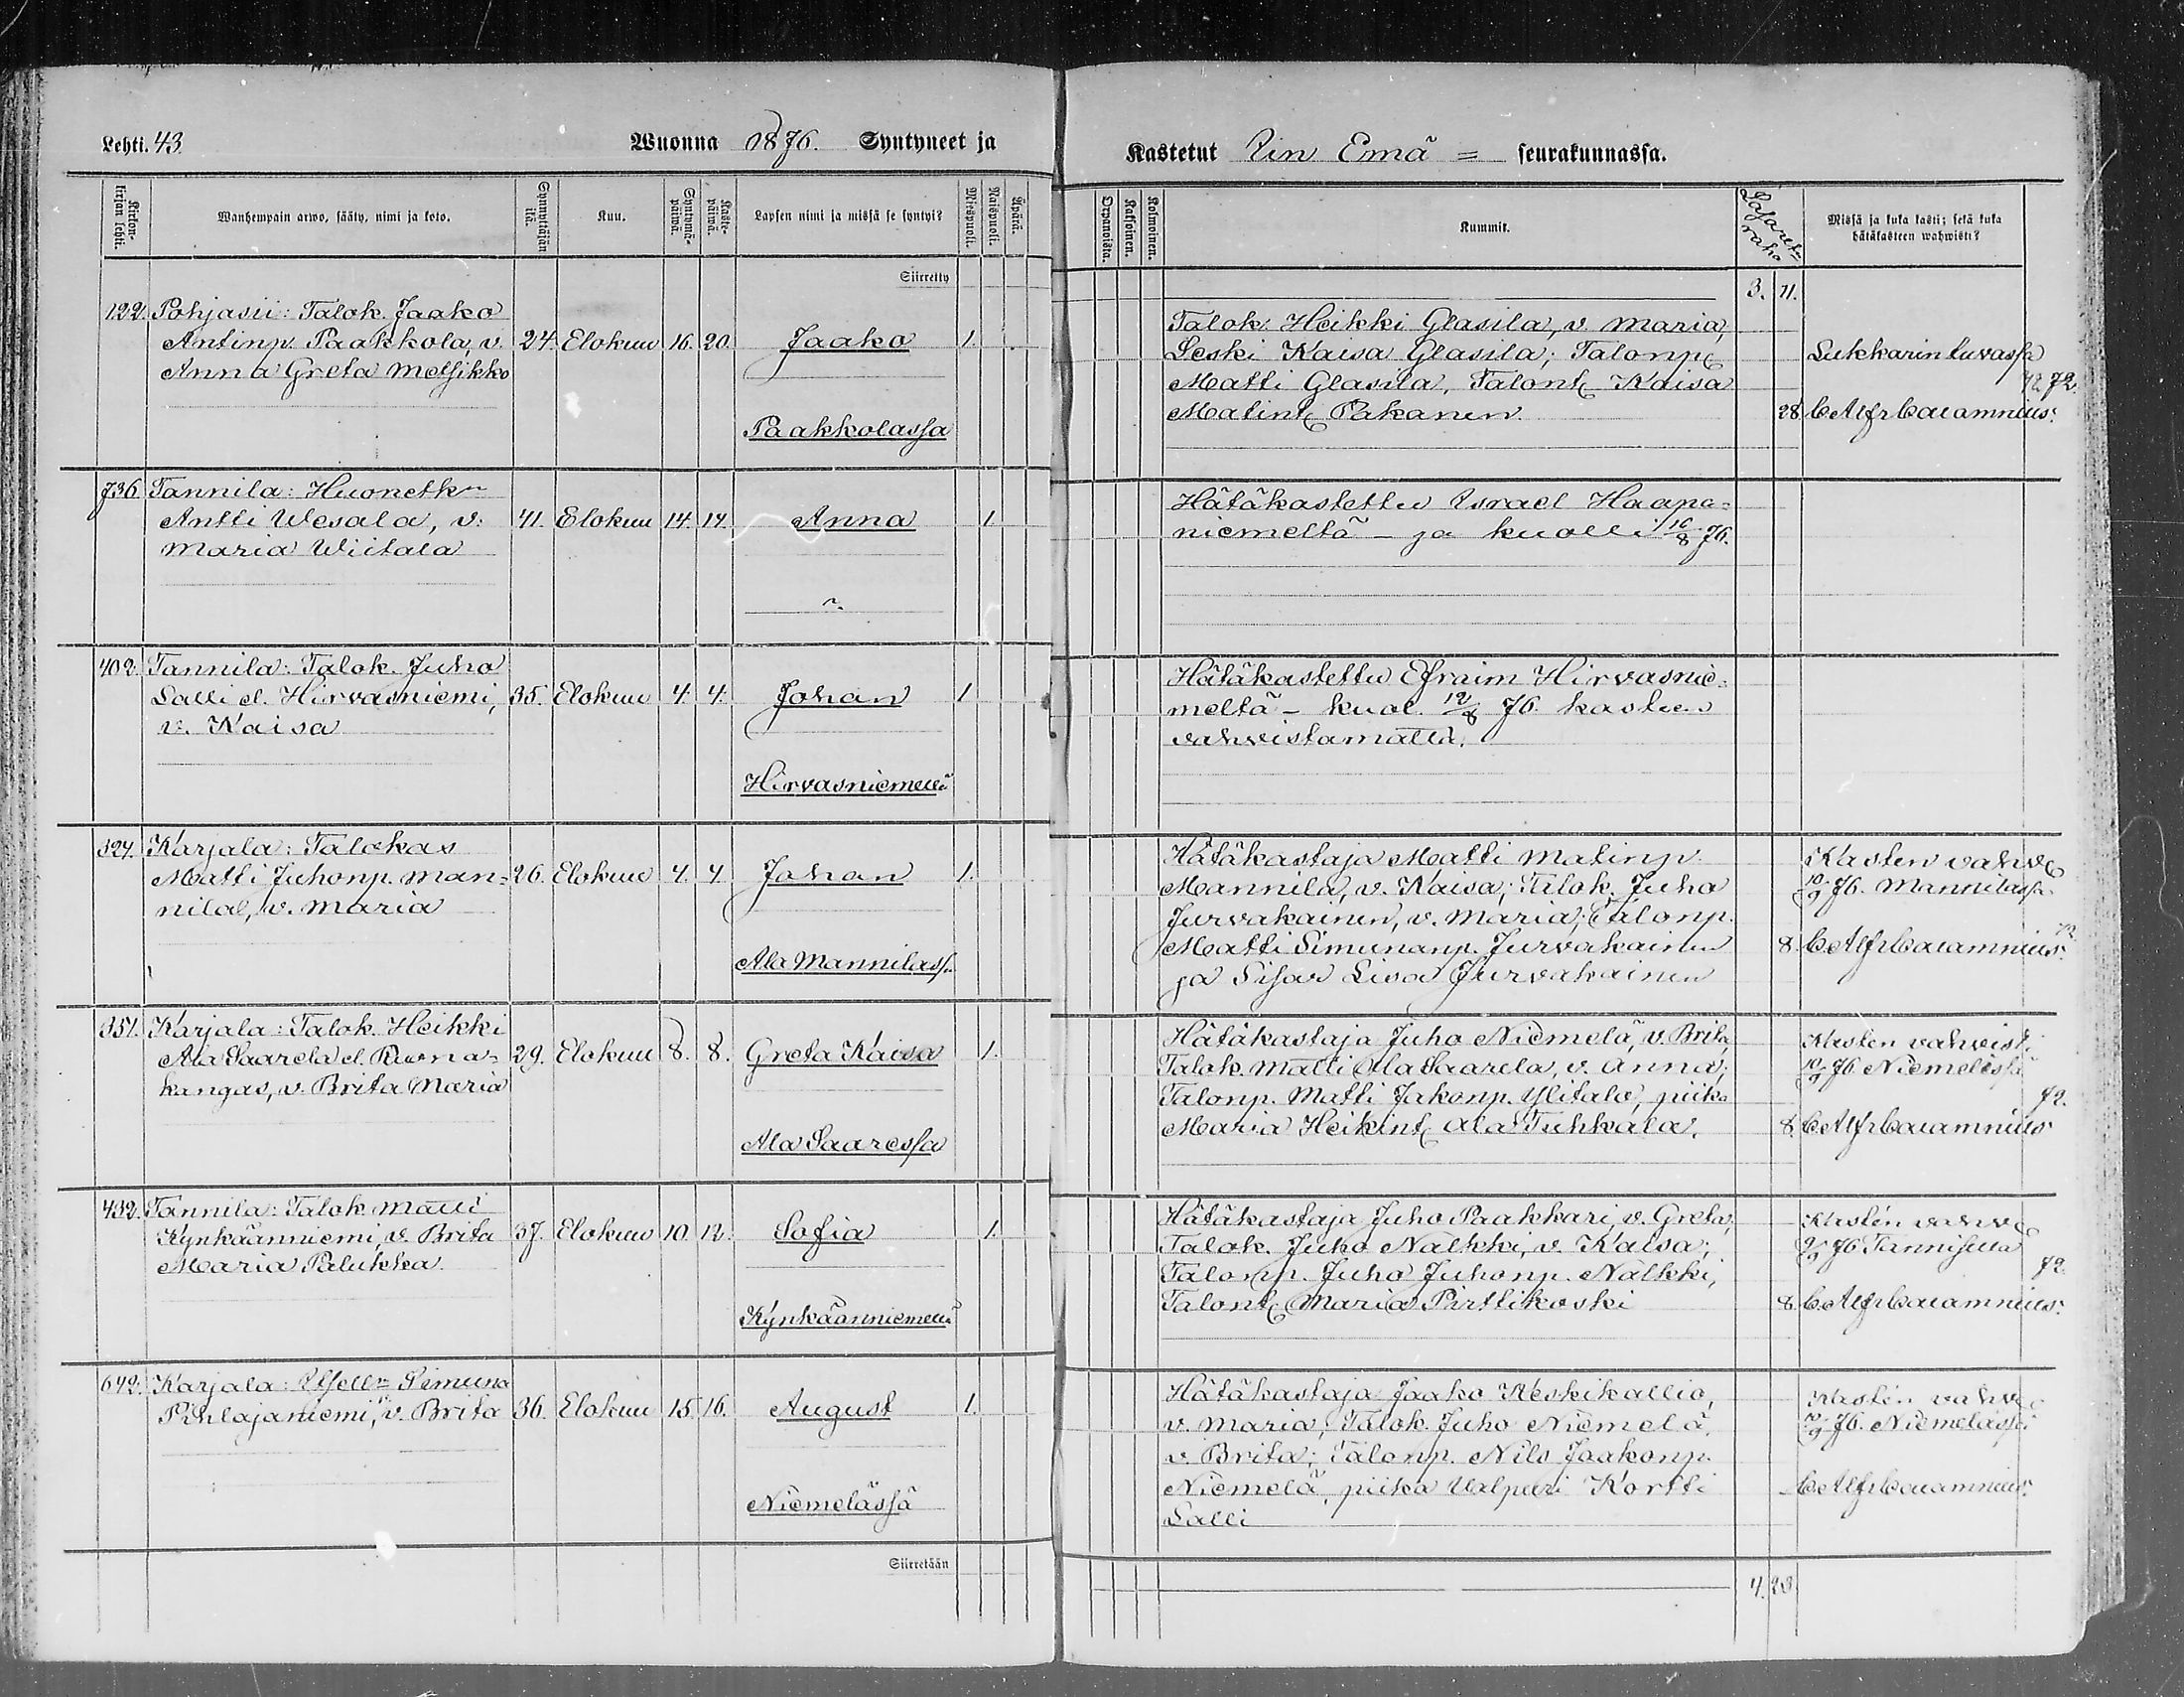 Lehti. 43
Wuonna 1876. Syntyneet ja
Kirkon-kirjan lehti.
Wanhempain arwo, sääty, nimi ja koto.
Synnyttäjän ikä.
Kuu.
Syntymä-päiwä.
Kaste-päiwä.
Lapsen nimi ja missä se syntyi?
Miespuoli.
Waispuoli.
Äpärä.
Siirretty
122. Pohjasii: Talok. Jaako
Antinp. Paakkola, v. 24. Elokuu 16. 20. Jaako 1.
Anna Greta Metsikko
Paakkolassa
736 Tannila: Huonetk
Antti Wesala, v. 41. Elokuu 14. 14. Anna 1.
Maria Wiitala
402. Tannila: Talok. Juho
Salli el. Hirvasniemi, 35. Elokuu 4. 4. Johan 1
v. Kaisa
Hirvasniemellä
324. Karjala: Talokas
Matti Juhonp. Man- 26. Elokuu 4. 4. Johan 1.
nila, v. Maria
Ala Mannilass.
351. Karjala: Talok. Heikki
Ala Saarela el. 29. Elokuu 8. 8. Greta Kaisa 1.
kangas, v. Brita Maria
Ala Saaressa
432. Tannila: Talok. Matti
Kynkäänniemi, v. Brita 37. Elokuu 10. 12. Sofia 1.
Maria Palukka.
Kynkäänniemellä
642. Karjala: Simuna
Pihlajaniemi, v. Brita 36. Elokuu 15. 16. August 1.
Niemelässä
Siirretään
Kastetut Iin Emä = seurakunnassa.
Orpanoista.
Kaksoinen.
Kolmoinen.
Kummit.
Lasaret-raha
Missä ja kuka kasti; sekä kuka
hätäkasteen wahwisti?
3. 11.
Talok. Heikki Glasila, v. Maria,
Leski Kaisa Glasila; Talonp.
Matti Glasila, Talont. Kaisa
Matint. Pakanen.
Lukkarin tuvassa
72.
28 C Alfr Cajamnius.
Hätäkastettu Israel Haapa-
niemeltä - ja kuolli 16/8 76.
Hätäkastettu Efraim Hirvasnie-
meltä - kuol. 12/8 76. kasteen
vahvistamatta.
Hätäkastaja Matti Matinp.
Mannila, v. Kaisa; Talok. Juho
Jurvakainen, v. Maria; Talonp.
Matti Simunanp. Jurvakainen
ja Sisar Liisa Jurvakainen
Kasten vahv.
10/9 76. Mannilassa.
8. C Alfr Cajamnius.
Hätäkastaja Juho Niemelä, v. Brita,
Talok. Matti Ala Saarela, v. Anna;
Talonp. Matti Jakonp. Ylitalo, piika
Maria Heikint. Ala Tuhkala.
Kasten vahvist.
10/9 76 Niemelässä
72.
8. C Alfr Cajamnius
Hätäkastaja Juho Paakkari, v. Greta,
Talok. Juho Nälkki, v. Kaisa;
Talonp. Juho Juhonp. Nälkki,
Talont. Maria Pirttikoski
Kasten vahv.
9/9 76 Tannilassa
72.
8. C Alfr Cajamnius.
Hätäkastaja Jaako Keskikallio,
v. Maria, Talok. Juho Niemelä,
v. Brita; Talonp. Nils Jaakonp.
Niemelä, piika Valpuri Kortti
Salli
Kasten vahv.
10/9 76. Niemelässä
C Alfr Cajamnius.
4. 20.